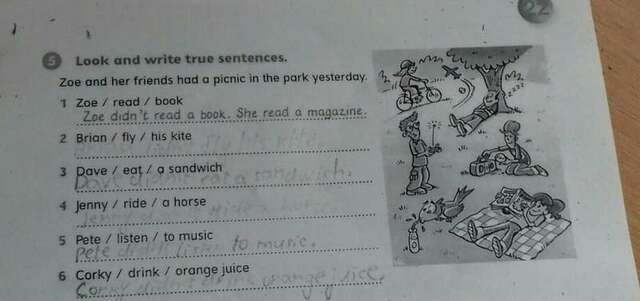 22
5 Look and write true sentences.
Zoe and her friends had a picnic in the park yesterday.
1 Zoe / read / book
Zoe didn't read a book. She read a magazine.
2 Brian / fly / his kite
his kite.
3 Dave / eat / a sandwich
Dave didn't eat a sandwich.
4 Jenny / ride / a horse
Jenny didn't ride a
5 Pete / listen / to music
Pete didn't listen to music.
6 Corky / drink / orange juice
Corky didn't drink orange juice.